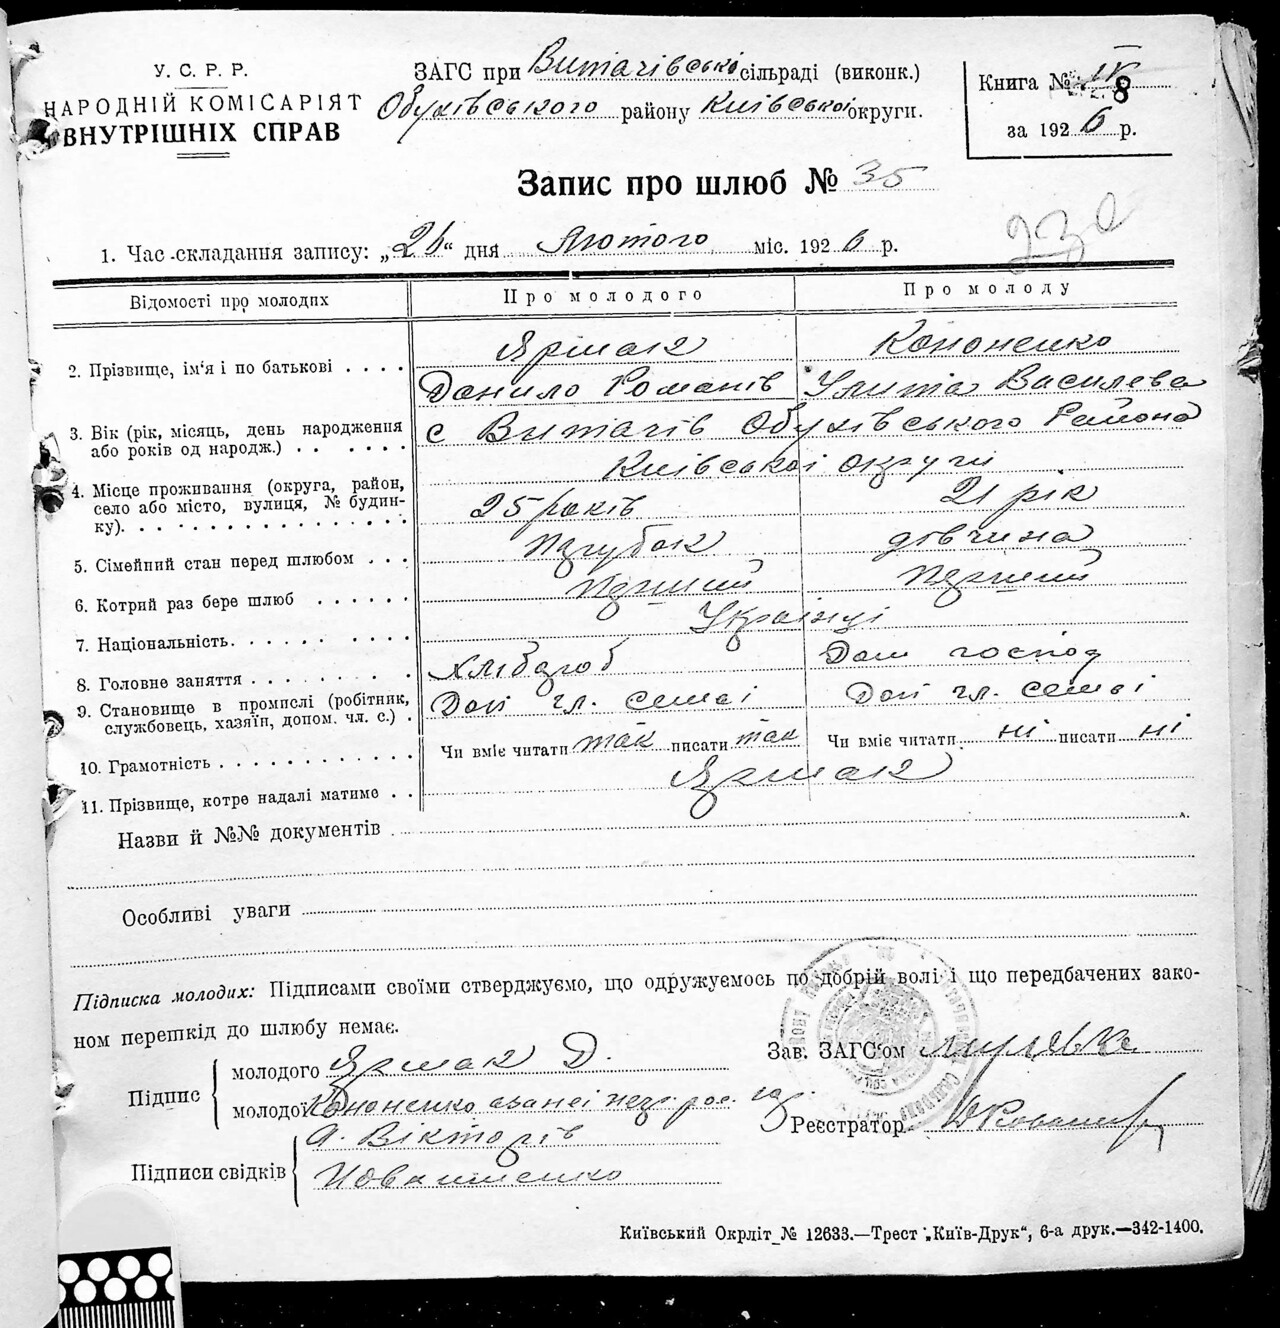 У. С. Р. Р.
НАРОДНІЙ КОМІСАРІЯТ
ВНУТРІШНІХ СПРАВ
ЗАГС при Витачівській сільраді (виконк.)
Обухівського району Київської округи.
Книга № IV 8
за 1926 р.
Запис про шлюб № 35
232
1. Час складання запису: „26“ дня Лютого міс. 1926 р.
Відомості про молодих Про молодого Про молоду
2. Прізвище, ім'я і по батькові . . . . Ярмак Кононенко
Данило Романів Улита Василева
3. Вік (рік, місяць, день народження або років од народж.) . . . . . . с Витачів Обухівського Района
Київської округи
4. Місце проживання (округа, район, село або місто, вулиця, № будинку). . . . 25 років 21 рік
5. Сімейний стан перед шлюбом . . . парубок дівчина
6. Котрий раз бере шлюб . . . . . . перший перший
7. Національність. . . . . . . . . . Українці
8. Головне заняття . . . . . . . . . хлібороб Дом господ
9. Становище в промислі (робітник, службовець, хазяїн, допом. чл. с.) . Доп чл. семьї Доп чл. семьї
10. Грамотність . . . . . . . . . . . . Чи вміє читати так писати так Чи вміє читати ні писати ні
11. Прізвище, котре надалі матиме . . Ярмак
Назви й №№ документів
Особливі уваги
Підписка молодих: Підписами своїми стверджуємо, що одружуємось по добрій волі і що передбачених зако-
ном перешкід до шлюбу немає.
Підпис
молодого Ярмак Д.
молодої Кононенко
Підписи свідків
А. Вікторів
Зав. ЗАГС'ом
Реєстратор
Київський Окрліт № 12633.—Трест „Київ-Друк“, 6-а друк.—342-1400.